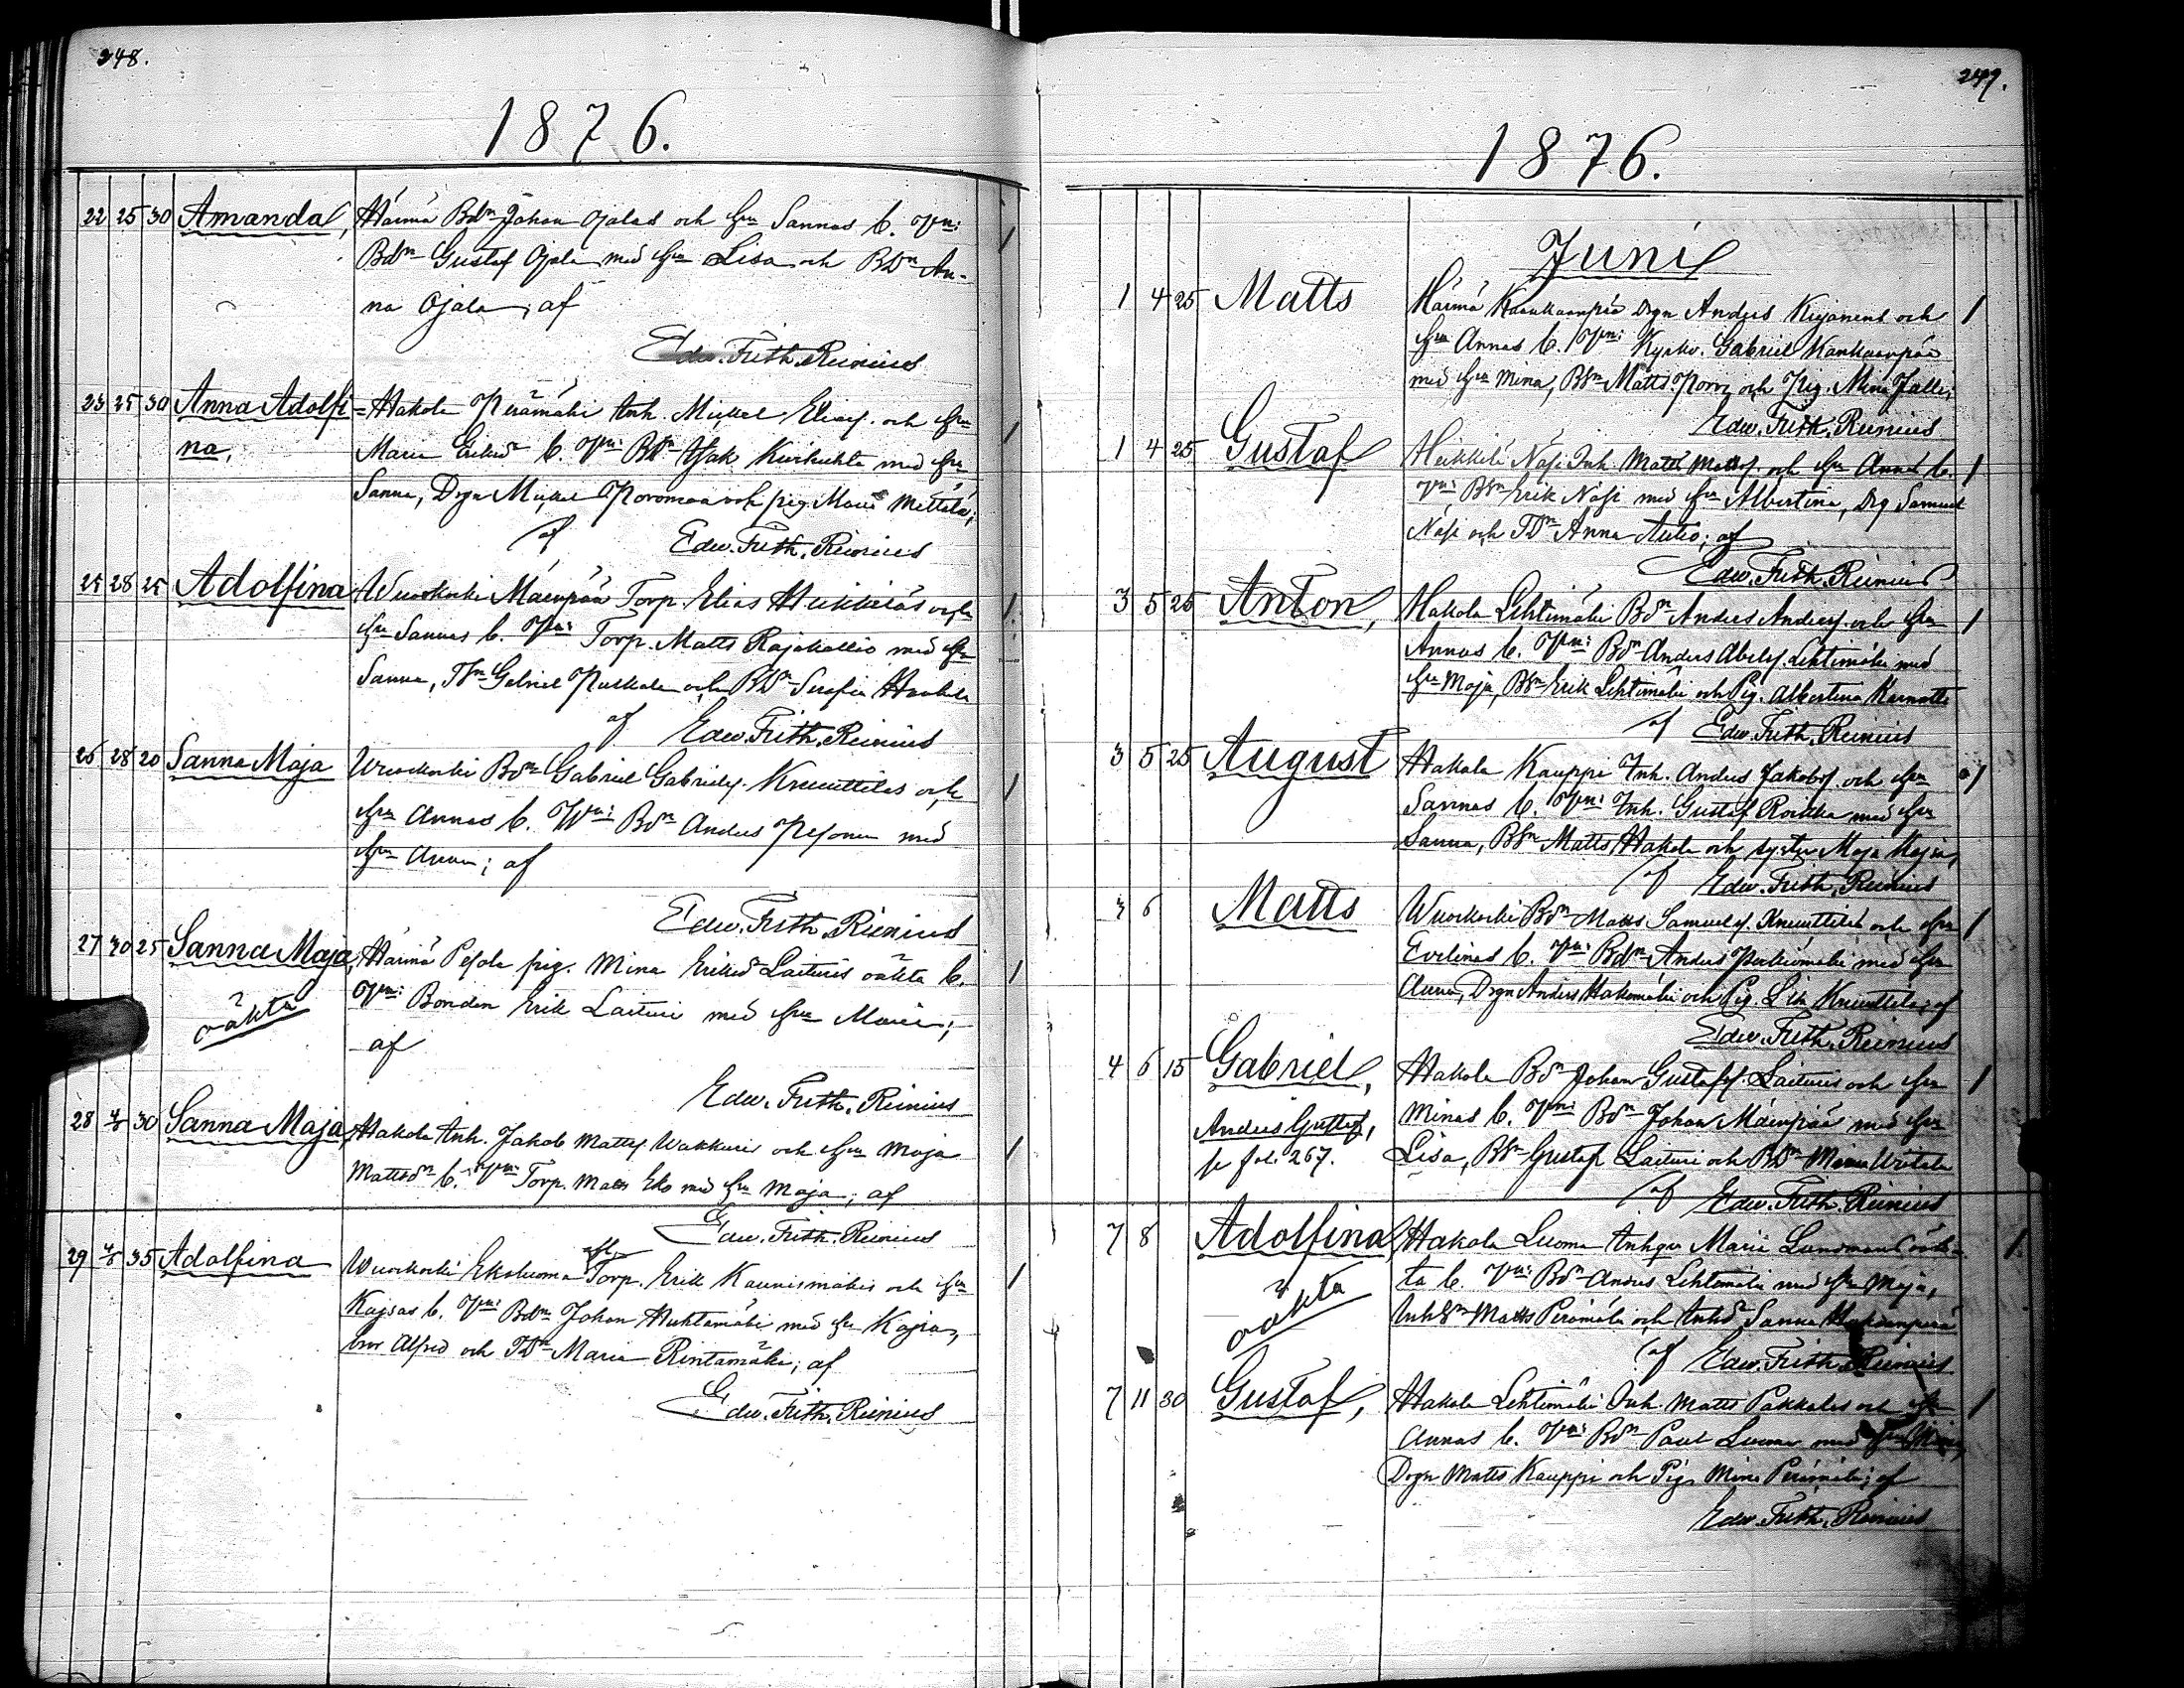 248.
1876.
22 25 30 Amanda, Härmä Bdn Johan Ojalas och hu Sannas b. Vn:
Bdn Gustaf Ojala med hu Lisa och BDn An-
na Ojala; af
Edw. Frith. Reinius
23 25 30 Anna Adolfi- Hakola Perämäki Inh. Mickel Eliass. och hu
na, Maria b. Vn: Isak med hu
Sanna, Drgn Mickel Poromaa och pig. Maria Mettälä;
af Edw. Frith. Reinius
25 28 25 Adolfina Wuoskoski Mäenpää Torp. Elias Heikkiläs och
hu Sannas b. Vn: Torp. Matts Rajakallio med hu
Sanna, Gabriel och BDn Serafia
af Edw. Frith. Reinius
26 28 20 Sanna Maja Wuoskoski Bdn Gabriel Gabriels. Knuuttilas och
hu Annas b. Vn: Bdn Anders Pesonen med
hu Anna; af
Edw. Frith. Reinius
27 30 25 Sanna Maja, Härmä Pesola pig. Mina Eriksdr Laituris oäkta b.
oäkta Vn: Bonden Erik Laituri med hu Maria;
af
Edw. Frith. Reinius
28 30 Sanna Maja, Hakola Inh. Jakob Matts. Wakkuri och hu Maja
Mattsdr b. Vn: Torp. Matts Eko med hu Maja; af
Edw. Frith. Reinius
29 35 Adolfina Wuoskoski Ekoluoma Torp. Erik Kaunismäkis och hu
Kajsas b. Vn: Bdn Johan Huhtamäki med hu Kajsa,
bror Alfred och TDn Maria Rintamäki; af
Edw. Frith. Reinius
249.
1876.
Juni
1 4 25 Matts Härmä Kankaanpää Drgn Anders Kujanens och
hu Annas b. Vn: Kyrkv. Gabriel Kankaanpää
med hu Mina, BSn Matts och Pig. Mina
Edw. Frith. Reinius
1 4 25 Gustaf Heikkilä Näsi Inh. Matts Matts. och hu Annas b.
Vn: BSn Erik Näsi med hu Albertina, Drg Samuel
Näsi och TDn Anna Autio; af
Edw. Frith. Reinius
3 5 25 Anton, Hakola Lehtimäki Bdn Anders Anders. och hu
Annas b. Vn: Bdn Anders Abels. Lehtimäki med
hu Maja, BSn Erik Lehtimäki och Pig. Albertina
af Edw. Frith. Reinius
3 5 25 August Hakola Kauppi Inh. Anders Jakobs. och hu
Sannas b. Vn: Inh. Gustaf med hu
Sanna, BSn Matts Hakola och syster Maja Kajsa,
af Edw. Frith. Reinius
3 6 Matts Wuoskoski Bdn Matts Samuels. Knuuttilas och hu
Evelinas b. Vn: Bdn Anders med hu
Anna, Drgn Anders Hakomäki och Pig. Knuuttila; af
Edw. Frith. Reinius
4 6 15 Gabriel, Hakola Bdn Johan Gustafs. Laituris och hu
Anders Gustaf, Minas b. Vn: Bdn Johan Mäenpää med hu
se fol. 267. Lisa, BSn Gustaf Laituri och BDn
af Edw. Frith. Reinius
7 8 Adolfina, Hakola Luoma Inhqu Maria Lundmans oäk-
ta b. Vn: Bdn Anders Lehtimäki med hu Maja,
oäkta InhSn Matts Perämäki och Inhd Sanna
af Edw. Frith. Reinius
7 11 30 Gustaf, Hakola Lehtimäki Inh. Matts Pakkalas och hu
Annas b. Vn: Bdn Paul Luoma med hu
Drgn Matts Kauppi och Pig. Mina Perämäki; af
Edw. Frith. Reinius